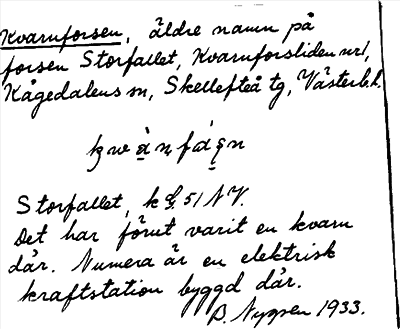 Kvarnforsen, äldre namn på
forsen Storfallet, Kvarnforsliden nr 1,
Kågedalens sn, Skellefteå tg, Västerb. l.
Storfallet, k bl. 51 NV.
Det har förut varit en kvarn
där. Numera är en elektrisk
kraftstation byggd där.
1933.